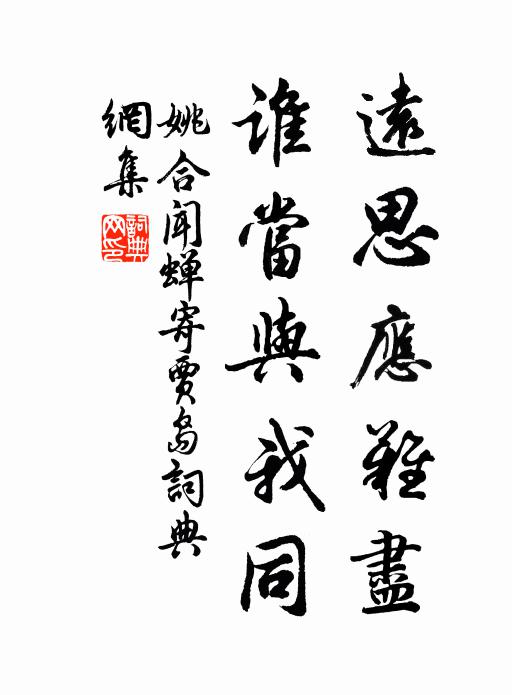 遠思應難盡
誰當與我同
姚合聞蝉寄賈島詞典
網集
詞典
网印